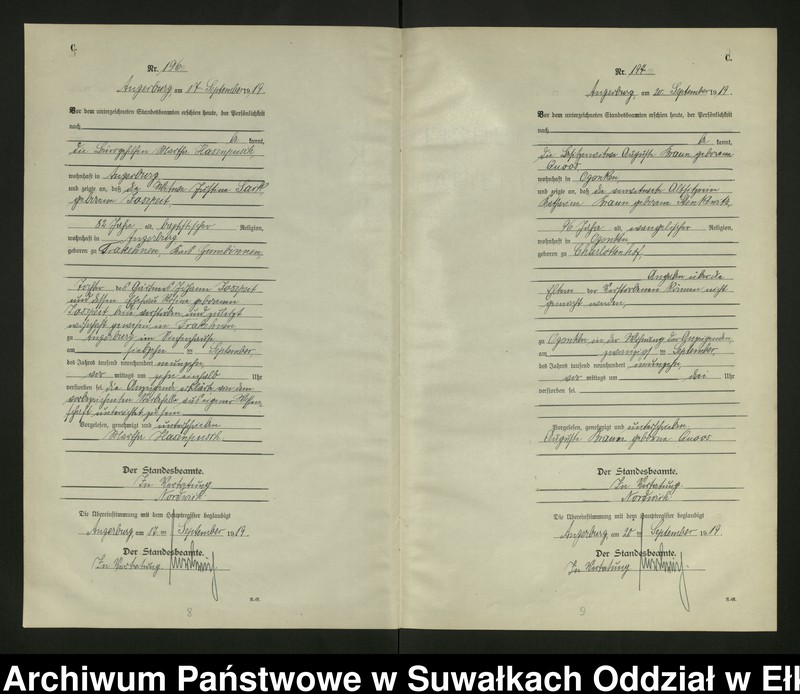 C.
Nr. 196
Angerburg am 17 September 1919.
Vor dem unterzeichneten Standesbeamten erschien heute, der Persönlichkeit
nach
kannt,
die Martha Hasenpusch
wohnhaft in Angerburg
und zeigte an, daß die Witwe Justine
geborene Josspeit
82 Jahre alt, baptistischer Religion,
wohnhaft in Angerburg
geboren zu Trakehnen, Gumbinnen,
Tochter des Johann Josspeit
und dessen Ehefrau geborenen
Josspeit beide verstorben und zuletzt
wohnhaft gewesen in Trakehnen
zu Angerburg im Siechenhause
am siebzehn ten September
des Jahres tausend neunhundert neunzehn
vor mittags um zehn einhalb Uhr
verstorben sei. Die Anzeigende erklärte von dem
vorbezeichneten Sterbefalle aus eigener Wissen-
schaft unterrichtet zu sein
Vorgelesen, genehmigt und unterschrieben
Martha Hasenpusch
Der Standesbeamte.
In Vertretung
Nordwich
Die Übereinstimmung mit dem Hauptregister beglaubigt
Angerburg am 17 ten September 1919.
Der Standesbeamte.
In Vertretung
8
C.
Nr. 197
Angerburg, am 20. September 1919.
Vor dem unterzeichneten Standesbeamten erschien heute, der Persönlichkeit
nach
kannt,
die Auguste Braun geborene
wohnhaft in Ogonken
und zeigte an, daß die verwitwete Altsitzerin
Katharina Braun geborene
96 Jahre alt, evangelischer Religion,
wohnhaft in Ogonken
geboren zu Charlottenhof,
Angaben über die
Eltern der Verstorbenen können nicht
gemacht werden,
zu Ogonken in der Wohnung der Anzeigenden,
am zwanzigsten September,
des Jahres tausend neunhundert neunzehn
vor mittags um drei Uhr
verstorben sei.
Vorgelesen, genehmigt und unterschrieben.
Auguste Braun geborene
Der Standesbeamte.
In Vertretung
Nordwich
Die Übereinstimmung mit dem Hauptregister beglaubigt
Angerburg, am 20 ten September 1919.
Der Standesbeamte.
In Vertretung
9
Archiwum Państwowe w Suwałkach Oddział w Eł